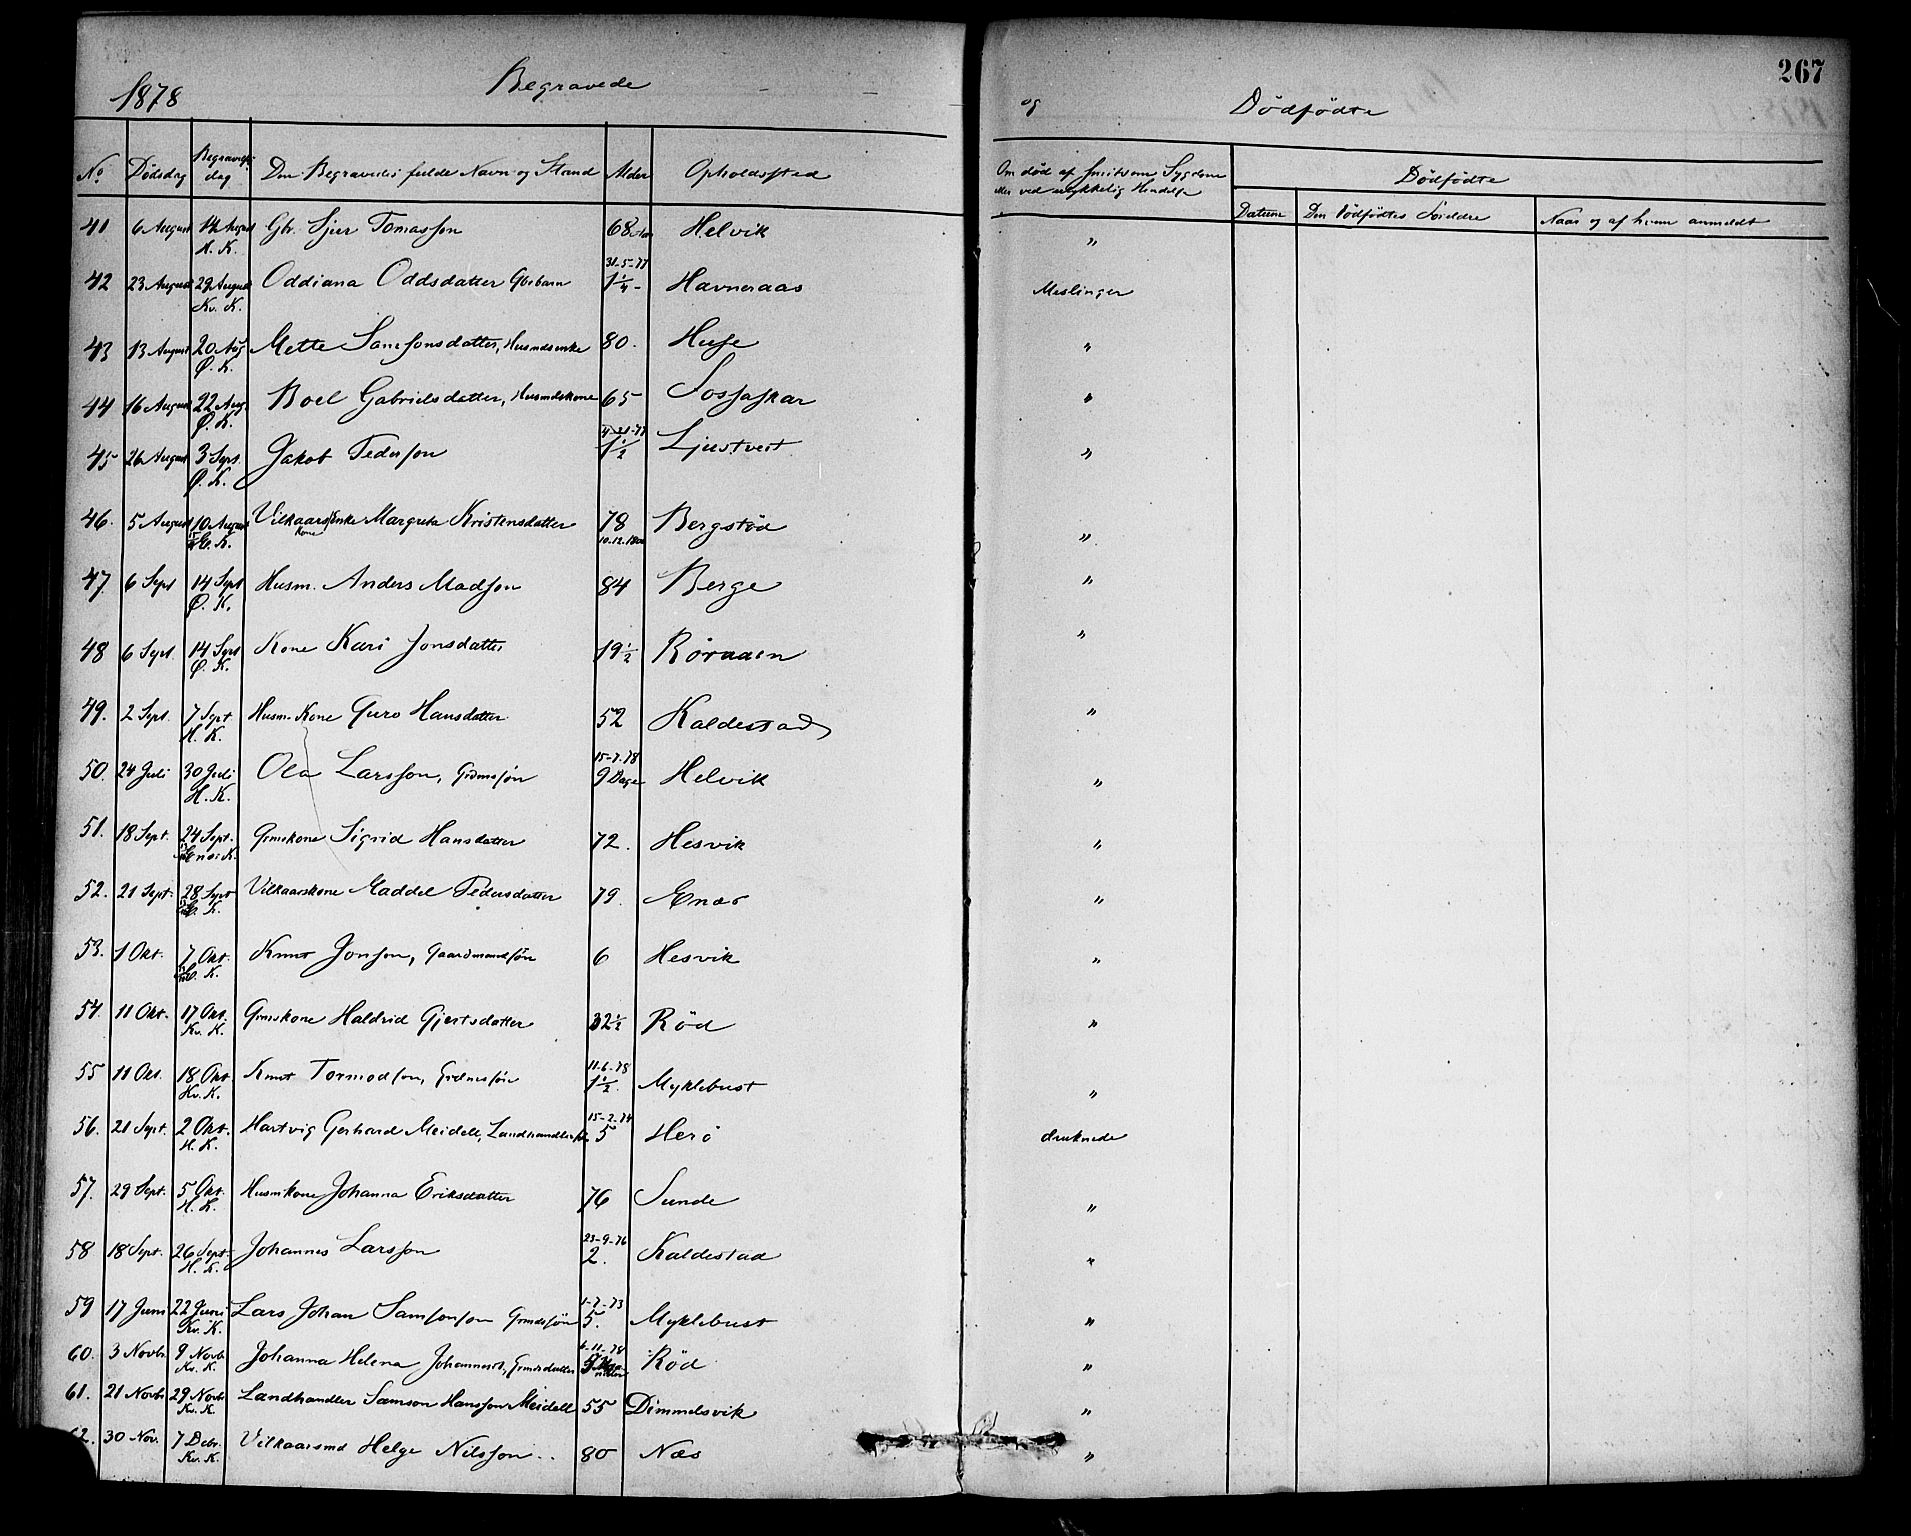 1878 Begravede og Dødfødte 267
No Dødsdag Begravelses dag Den Begravedes fulde Navn og Stand Alder Opholdssted Om død af smitsom Sygdom eller ved ulykkelig Hendelse Dødfødte
Datum Den Dødfødtes Foreldre Naar og af hvem anmeldt
41 6 August 14 August Gbr. Sjur Tomasson 68 Helvik "
H. K.
31-5-77
42 23 August 29 August Oddiana Oddsdatter Gbrbarn 1 1/4 - Havneraas Meslinger
Kv. K.
43 13 August 20 Aug Mette Samsonsdatter, Husmdsenke 80. Huse "
Ø. K.
44 16 August 22 Aug. Boel Gabrielsdatter, Husmdskone 65 "
Ø. K.
45 26 August 3 Sept. Jakob Pederson 1 1/2 "
Ø. K.
46. 5 August 10 August Vilkaars Enke Margreta Kristensdatter 78 Bergstød "
Kone
K. 10.12.1800
47 6 Sept 14 Sept Husm. Anders Madson 84 Berge "
Ø. K.
48 6 Sept. 14 Sept Kone Kari Jonsdatter 19 1/2 Røraaen "
Ø. K.
49. 2 Sept. 7 Sept. Husm. Kone Guro Hansdatter 52 Kaldestad "
H. K.
15-7.78
50. 24 Juli 30 Juli Ola Larsson, Grdmssøn 9 Dage Helvik "
H. K.
51. 18 Sept. 24 Sept. Grmskone Sigrid Hansdatter 72. Hesvik "
Enes K.
52. 21 Sept. 28 Sept Vilkaarskone Maddel Pedersdatter 79. Enæs "
K.
53. 1 Okt. 7 Okt. Knut Jonson, Gaardmandssøn 6 Hesvik "
K.
54. 11 Okt. 17 Okt. Grmskone Haldrid Gjertsdatter 32 1/2 Rød "
Kv. K.
11-6-78
55 11 Okt. 18 Okt Knut Tormodson, Grdmssøn 1 1/2. Myklebust "
Kv. K.
15-2-74
56. 21 Sept. 2 Okt. Hartvig Gerhard Meidell, Landhandlers 5 Herø druknede
H. K.
57. 29 Sept. 5 Okt. Husmkone Johanna Eriksdatter 76 Sunde "
H. K.
23-9-76
58 18 Sept. 26 Sept. Johannes Larsson 2. Kaldestad "
H. K.
1-7-73
59 17 Juni 22 Juni Lars Johan Samsonson Grmdssøn 5. Myklebust "
Kv. K.
60. 3 Novbr 9 Novb. Johanna Helena Johannesd, Grmdsdatter Rød "
Kv. K.
61. 21 Novbr 29 Novbr Landhandler Samson Hansson Meidell 55 Dimmelsvik "
Kv. K.
62. 30 Nov. 7 Debr. Vilkaarsmd Helge Nilsson. 80 Næs "
Kv. K.